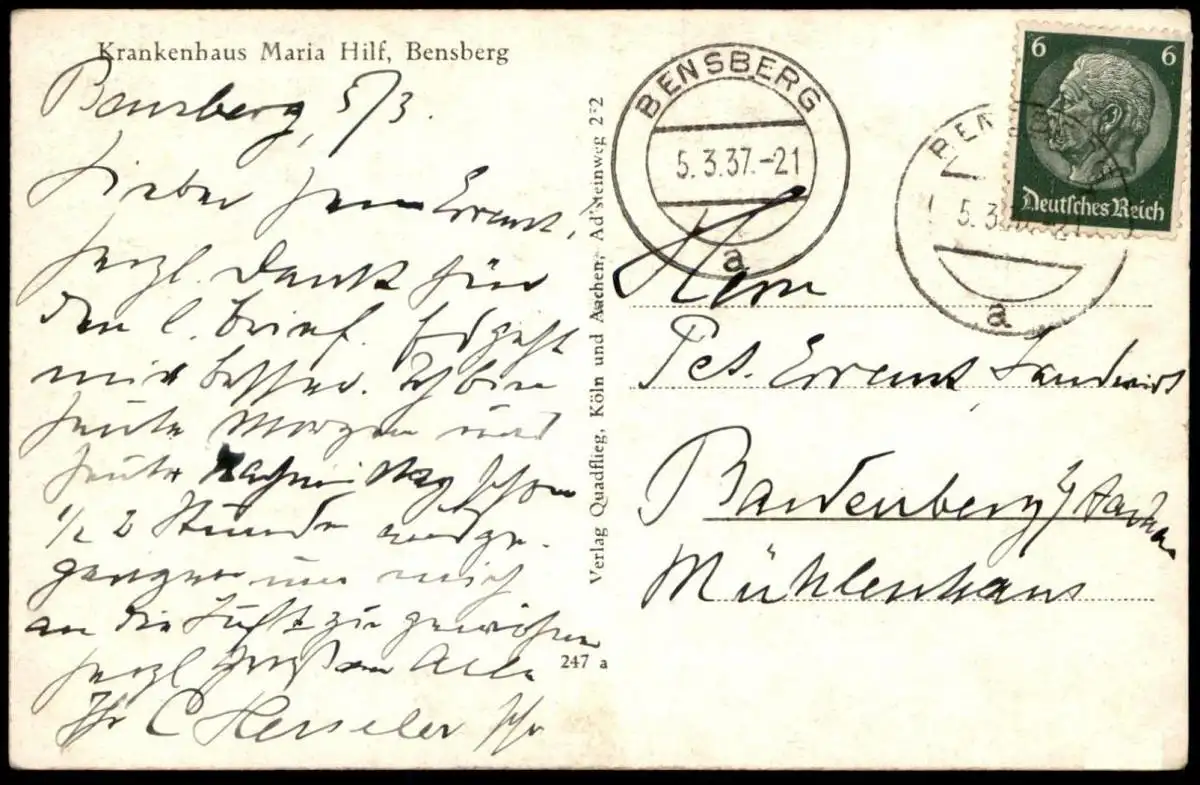 Krankenhaus Maria Hilf, Bensberg
Bensberg, 5/3.
Lieber Herr Errens,
herzl. Dank für
den l. Brief. Es geht
mir besser. Ich bin
heute Morgen und
heute Nachmittag schon
1/2 Stunde
gangen um mich
an die Luft zu gewöhnen
herzl Gruß an Alle
Ihr C Hesseler
Verlag Quadflieg, Köln und Aachen, Ad'steinweg 2
247 a
BENSBERG
5.3.37.-21
a
6 6
Deutsches Reich
BENSBERG
5.3.37.-21
a
Herrn
Pet. Errens, Landwirt
Bardenberg b/ Aachen
Mühlenhaus